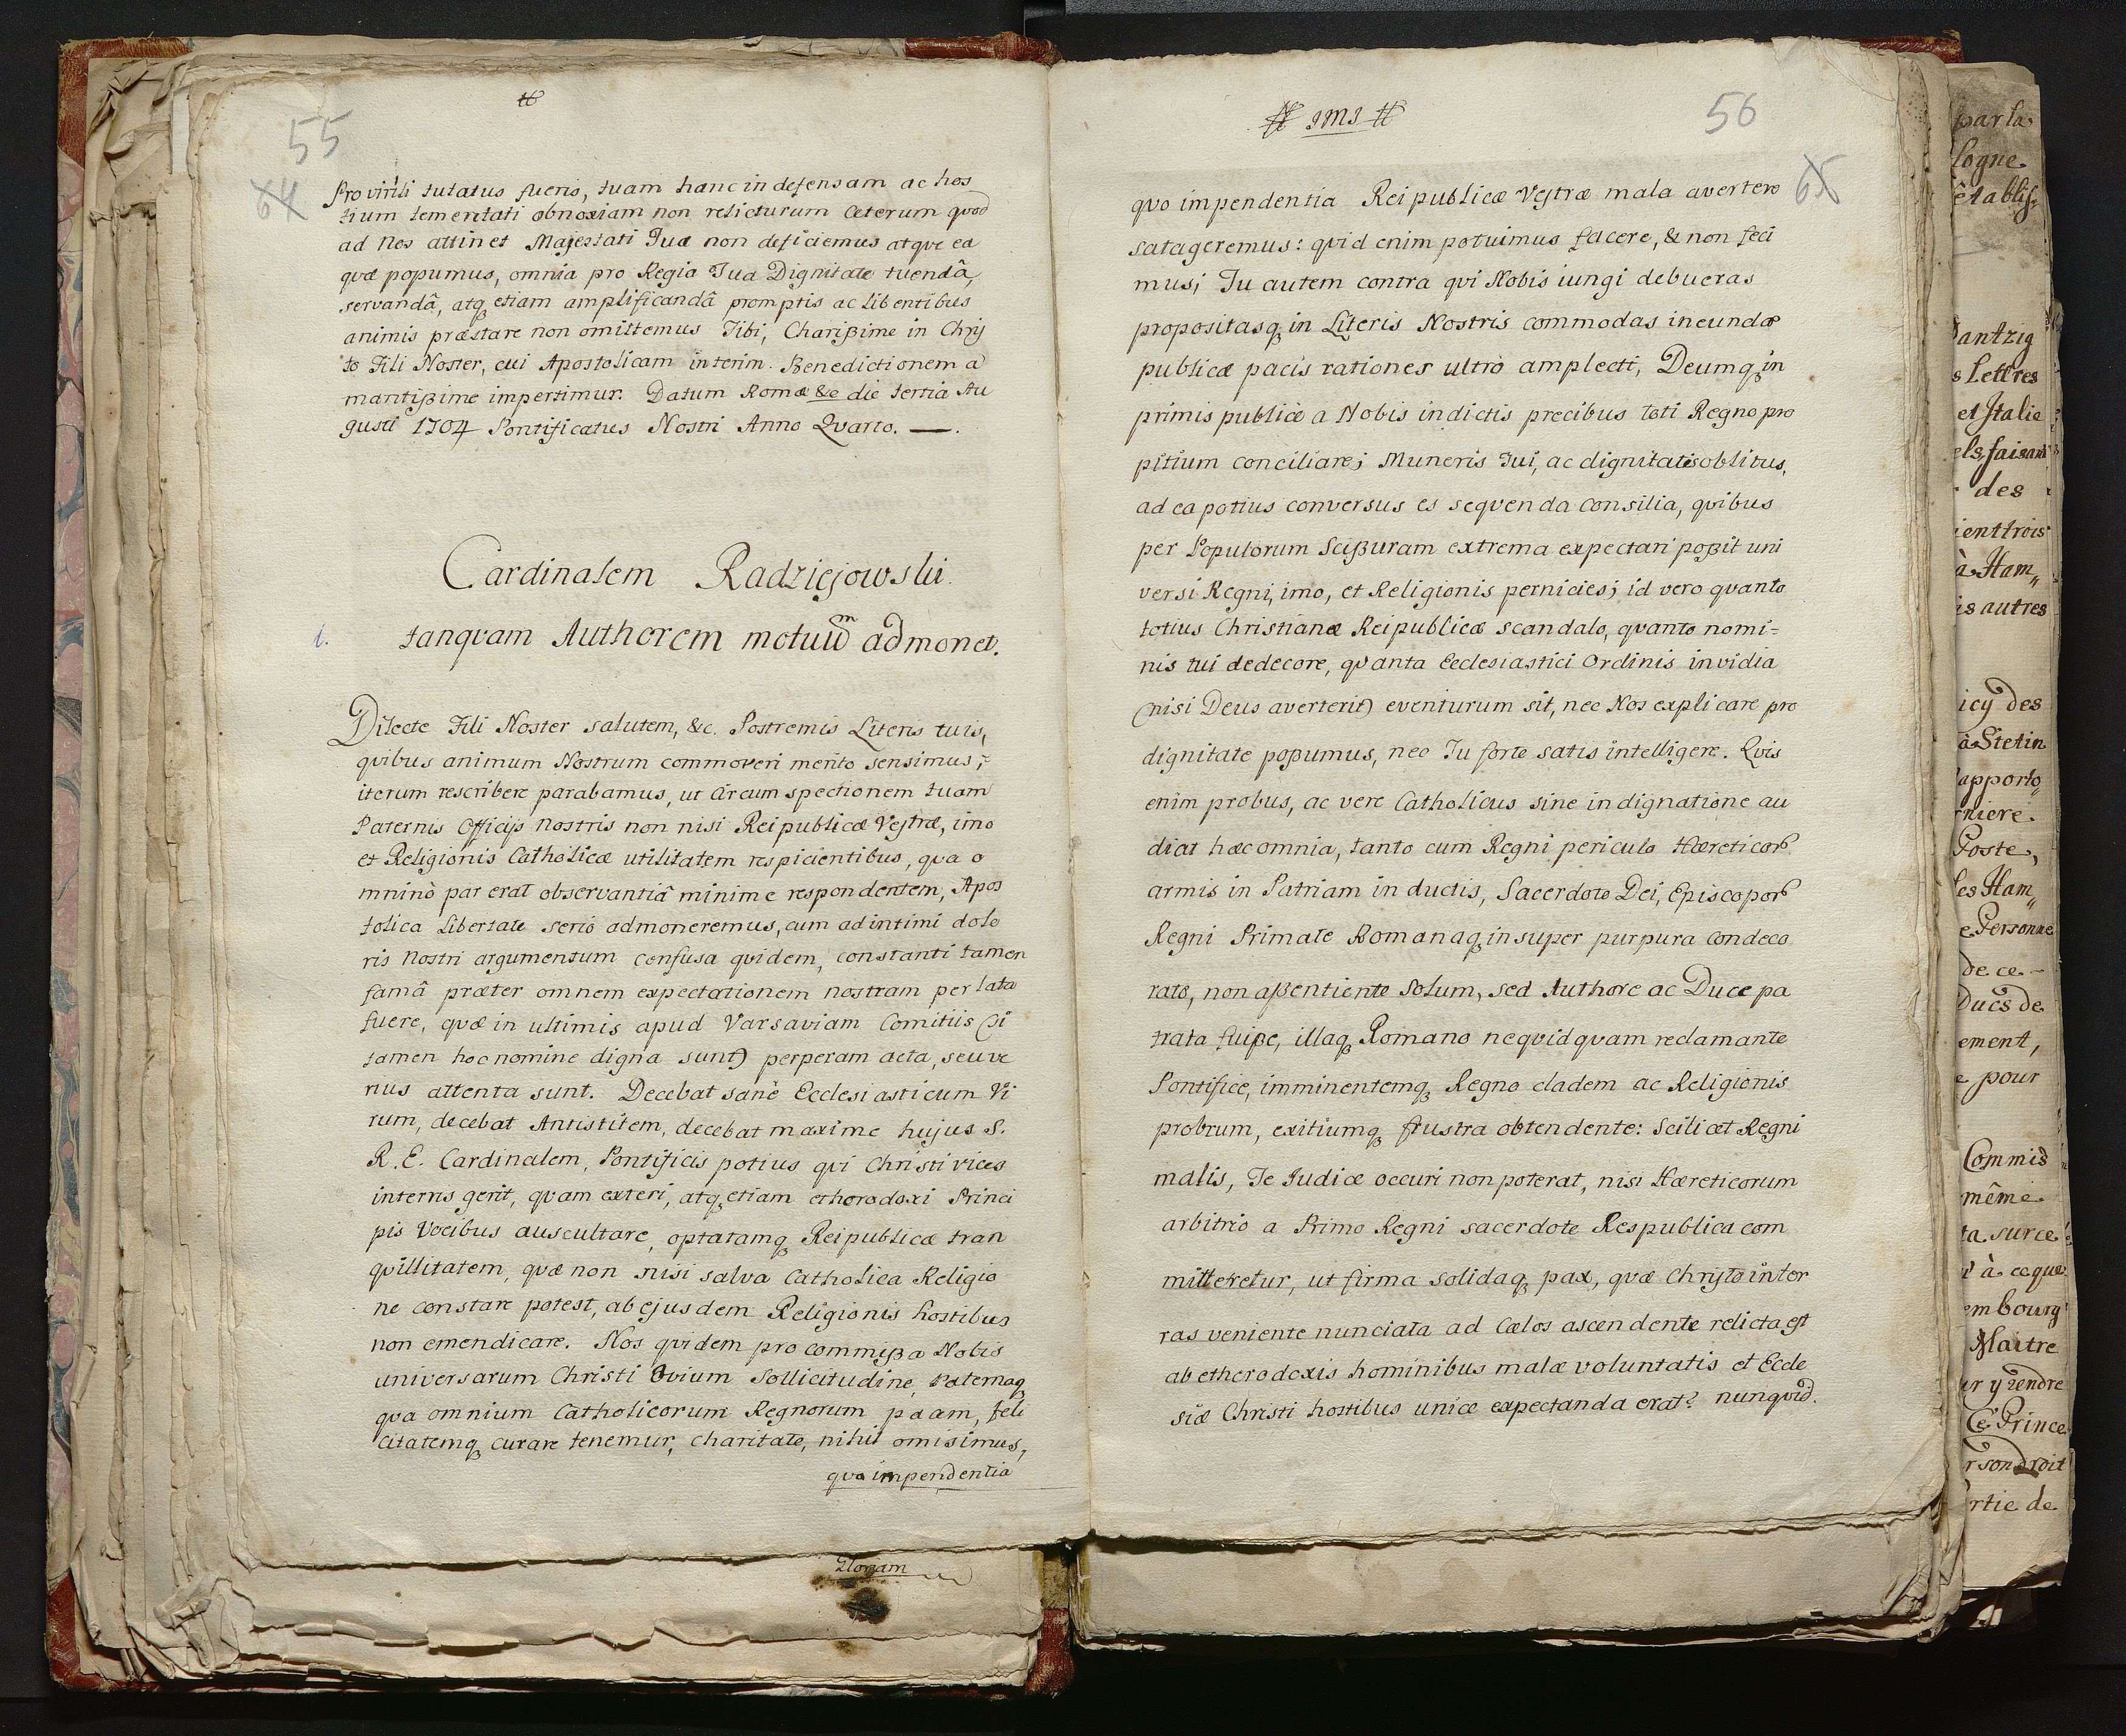 55
64
Pro virili tutatus fueris, tuam hanc indefensam ac hos
tium temeritati obnoxiam non relicturum Ceterum quod
ad Nos attinet Majestati Tuæ non deficiemus atque ea
quæ poßumus, omnia pro Regia Tua Dignitate tuendâ,
servandâ, atq₃ etiam amplificandâ promptis ac libentibus
animis præstare non omittemus Tibi, Charißime in Chris
to Fili Noster, cui Apostolicam interim Benedictionem a
mantißime impertimur. Datum Romæ &c die tertia Au
gusti 1704 Pontificatus Nostri Anno Qvarto. —.
Cardinalem Radziejowski.
1. tanqvam Authorem motuũm admonet.
Dilecte Fili Noster salutem, &c. Postremis Literis tuis,
qvibus animum Nostrum commoveri merito sensimus,
iterum rescribere parabamus, ut Circumspectionem tuam
Paternis Officijs Nostris non nisi Reipublicæ Vestræ, imo
et Religionis Catholicæ utilitatem respicientibus, qva o
mninò par erat observantiâ minime respondentem, Apos
tolica Libertate serio admoneremus, cum ad intimi dolo
ris Nostri argumentum confusa qvidem, constanti tamen
famâ præter omnem expectationem nostram perlata
fuere, qvæ in ultimis apud Varsaviam Comitiis (si
tamen hoc nomine digna sunt) perperam acta, seu ve
rius attenta sunt. Decebat sanè Ecclesiasticum Vi
rum, decebat Antistitem, decebat maxime hujus S.
R. E. Cardinalem, Pontificis potius qvi Christi vices
interris gerit, qvam exteri, atq₃ etiam etherodoxi Princi
pis Vocibus auscultare, optatamq₃ Reipublicæ tran
qvillitatem, qvæ non nisi salva Catholica Religio
ne constare potest, ab ejusdem Religionis hostibus
non emendicare. Nos qvidem pro commißa Nobis
universarum Christi Ovium Sollicitudine, Paternaq₃
qva omnium Catholicorum Regnorum pacem, feli
citatemq₃ curare tenemur, charitate, nihil omisimus,
qvo impendentia
JMJ
56
65
qvo impendentia Reipublicæ Vestræ mala avertere
satageremus: qvid enim potuimus facere, & non feci
mus; Tu autem contra qvi Nobis iungi debueras
propositasq₃ in Literis Nostris commodas ineundæ
publicæ pacis rationes ultrò amplecti, Deumq₃ in
primis publicè a Nobis indictis precibus toti Regno pro
pitium conciliare; Muneris Tui, ac dignitatis oblitus,
ad ea potius conversus es seqvenda Consilia, qvibus
per Populorum Scißuram extrema expectari poßit uni
versi Regni, imo, et Religionis pernicies; id vero qvanto
totius Christianæ Reipublicæ scandalo, qvanto nomi=
nis tui dedecore, qvanta Ecclesiastici Ordinis invidia
(nisi Deus averterit) eventurum sit, nec Nos explicare pro
dignitate poßumus, nec Tu forte satis intelligere. Qvis
enim probus, ac vere Catholicus sine indignatione au
diat hæc omnia, tanto cum Regni periculo Hæreticorũ
armis in Patriam inductis, Sacerdote Dei, Episcoporũ
Regni Primate Romanaq₃ insuper purpura Condeco
rato, non aßentiente Solum, sed Authore ac Duce pa
trata fuiße, illaq₃ Romano neqvidqvam reclamante
Pontifice, imminentemq₃ Regno cladem ac Religionis
probrum, exitiumq₃ frustra obtendente: Scilicet Regni
malis, Te Judice occuri non poterat, nisi Hæreticorum
arbitrio a Primo Regni sacerdote Respublica com
mitteretur, ut firma solidaq₃ pax, qvæ Christo inter
ras veniente nunciata ad Cælos ascendente relicta est
ab etherodoxis hominibus malæ voluntatis et Eccle
siæ Christi hostibus unice expectanda erat? nunqvid.
par la
logne
établis
Dantzig
s Lettres
et Italie
els, faisant
des
ient trois
à Ham„
is autres
icy des
à Stetin
apporto
niere.
Poste,
les Ham„
e Personne
de ce
Ducs de
ement,
e pour
Commis
même
ta surce
à ce que
embourg
Maitre
er y rendre
Ce Prince
r son droit
rtie de